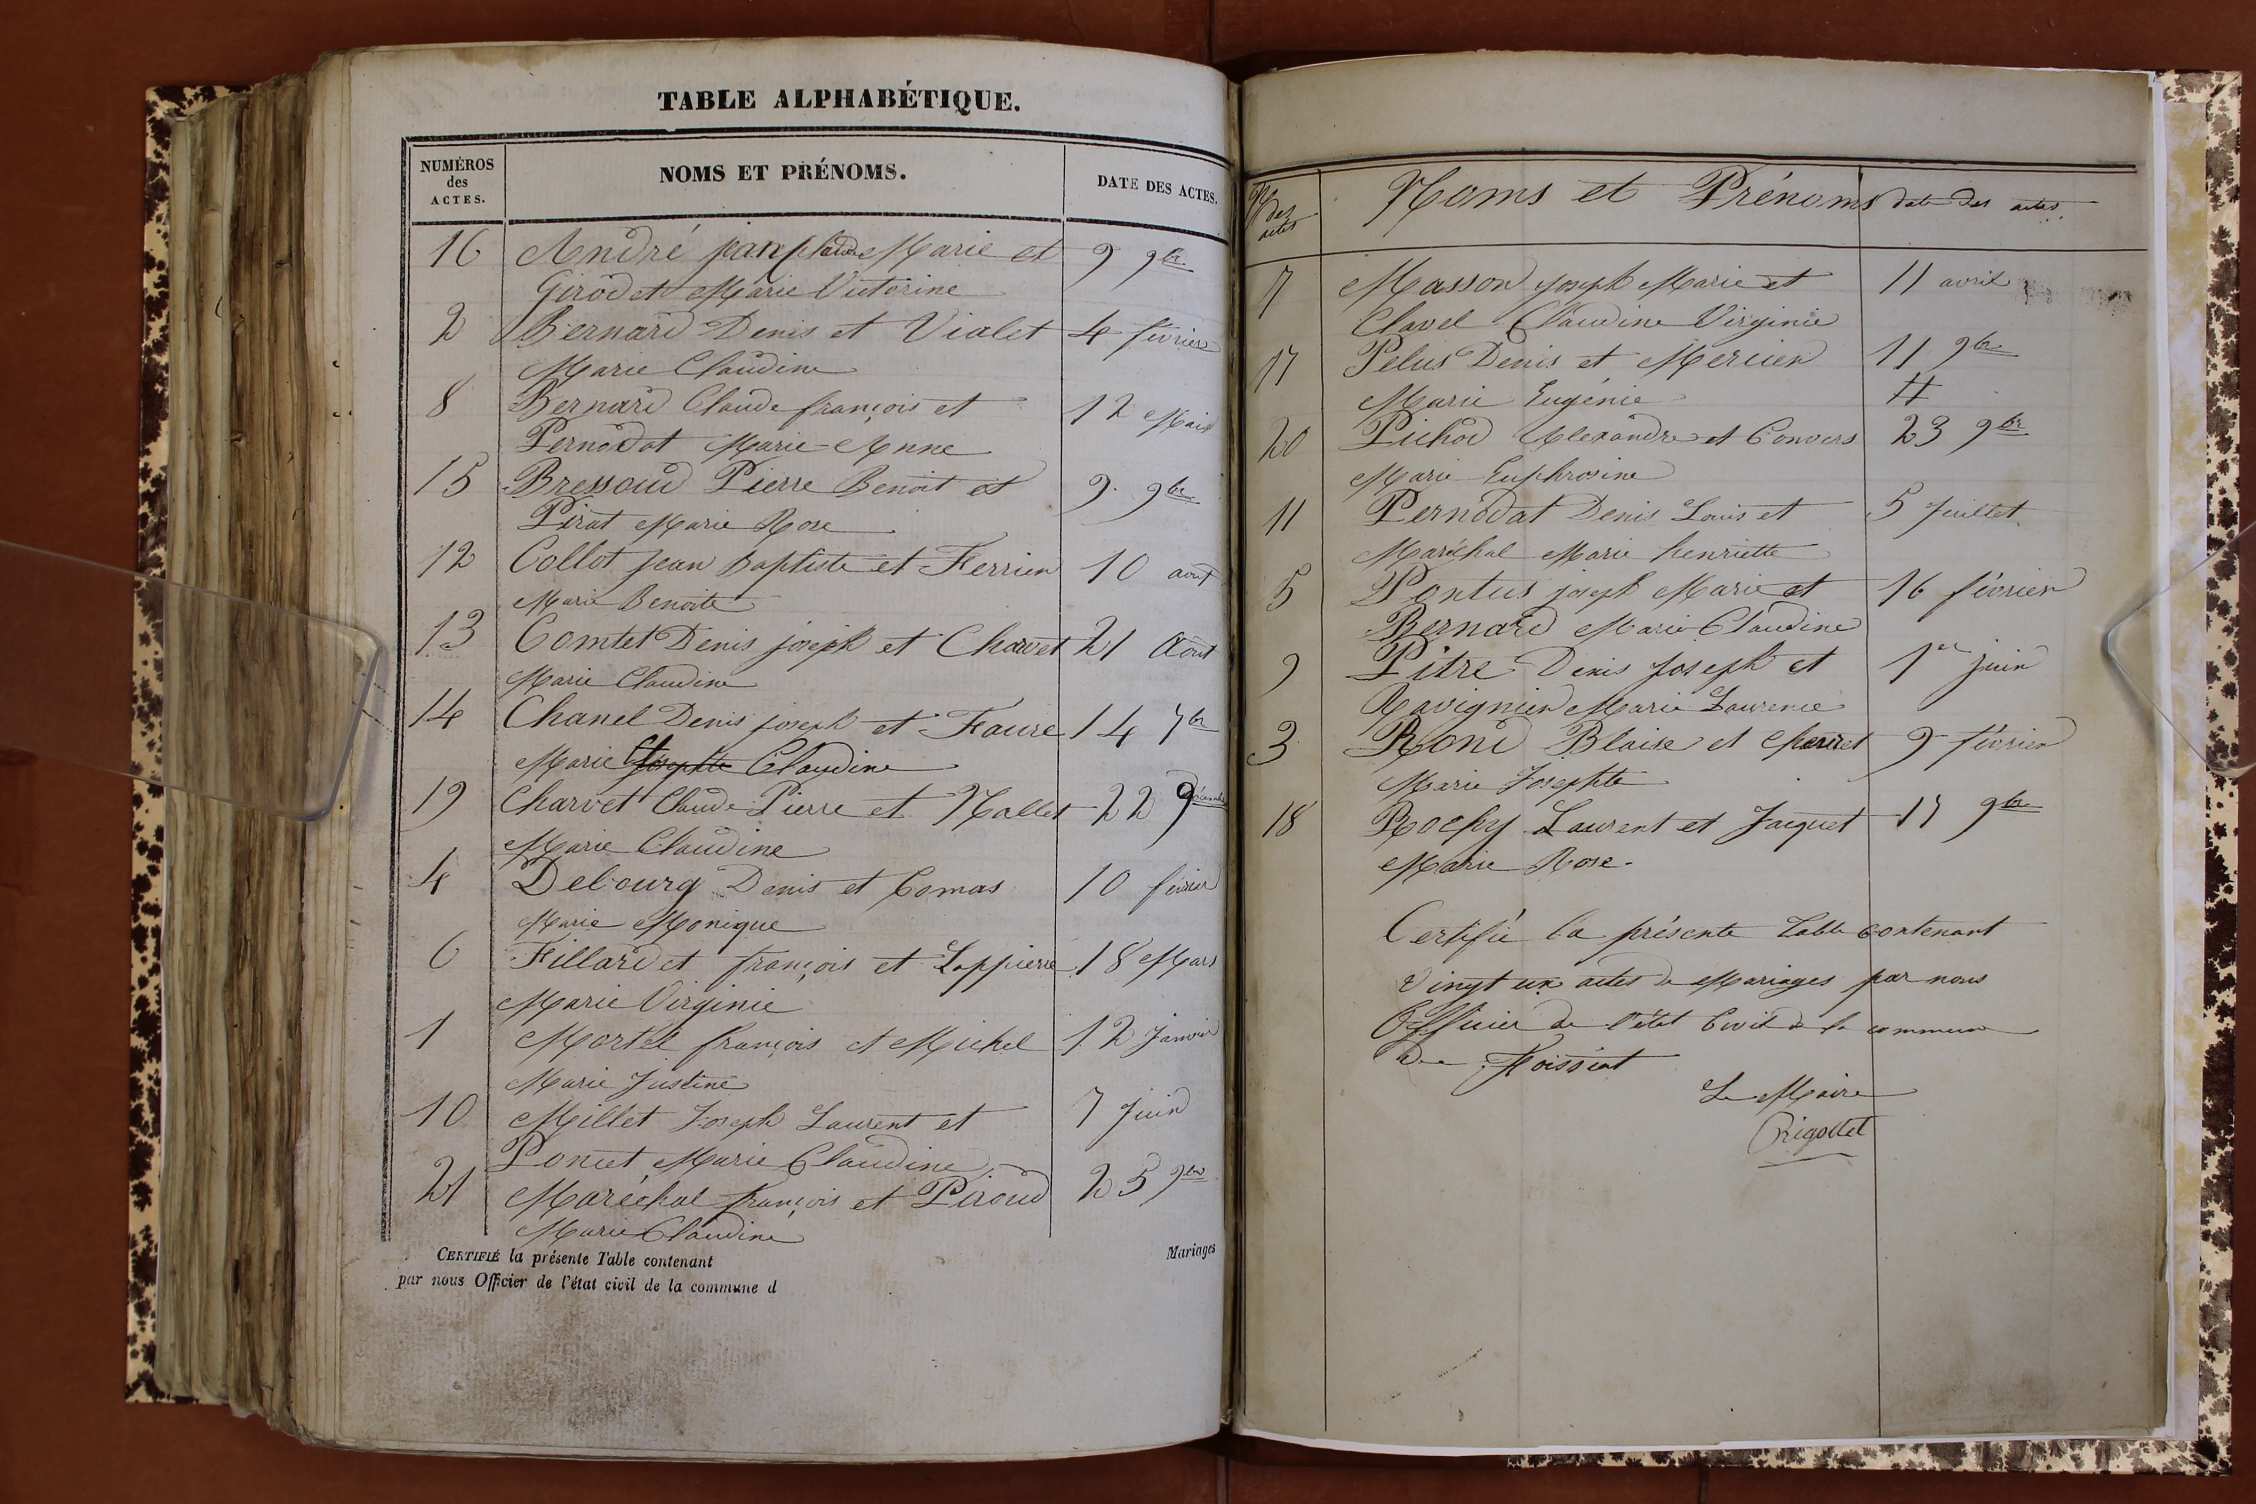 TABLE ALPHABÉTIQUE.
NUMÉROS
des
ACTES.
NOMS ET PRÉNOMS.
DATE DES ACTES.
16 André jean Marie et 9 9bre
Girodet Marie Victorine
2 Bernard Denis et Vialet 4 février
Marie Claudine
8 Bernard Claude françois et 12 Mai
Pernodat Marie-Anne
15 Bressoud Pierre Benoit et 9 9bre
Pirat Marie Rose
12 Collot jean Baptiste et Ferrier 10 aout
Marie Benoite
13 Comtet Denis joseph et Charvet 21 Aout
Marie Claudine
14 Chanel Denis joseph et Faure 14 7bre
Marie Josephte Claudine
19 Charvet Claude Pierre et Mallet 22
Marie Claudine
4 Debourg Denis et Comas 10 février
Marie Monique
6 Fillardet françois et Lappierre 18 Mars
Marie Virginie
1 Mortel françois et Michel 12 Janvier
Marie Justine
10 Millet Joseph Laurent et 7 Juin
Poncet Marie Claudine
21 Maréchal françois et Piroud 25 9bre
Marie Claudine
CERTIFIÉ la présente Table contenant Mariages
par nous Officier de l'état civil de la commune d
Nos
des
actes
Noms et Prénoms
date des actes.
7 Masson joseph Marie et 11 avril
Clavel Claudine Virginie
17 Pelus Denis et Mercier 11 9bre
Marie Eugénie
20 Pichod Alexandre et Convers 23 9bre
Marie Euphrosine
11 Pernodat Denis Louis et 5 Juillet
Maréchal Marie henriette
5 Pontus joseph Marie et 16 février
Bernard Marie-Claudine
9 Pitre Denis Joseph et 1er juin
Ravignier Marie Laurence
3 Rond Blaise et Perret 9 février
Marie Josephte
18 Rochy Laurent et Jacquet 17 9bre
Marie Rose.
Certifié la présente Table contenant
vingt un actes de Mariages par nous
Officier de l'état Civil de la commune
de Foissiat
Le Maire
Rigollet